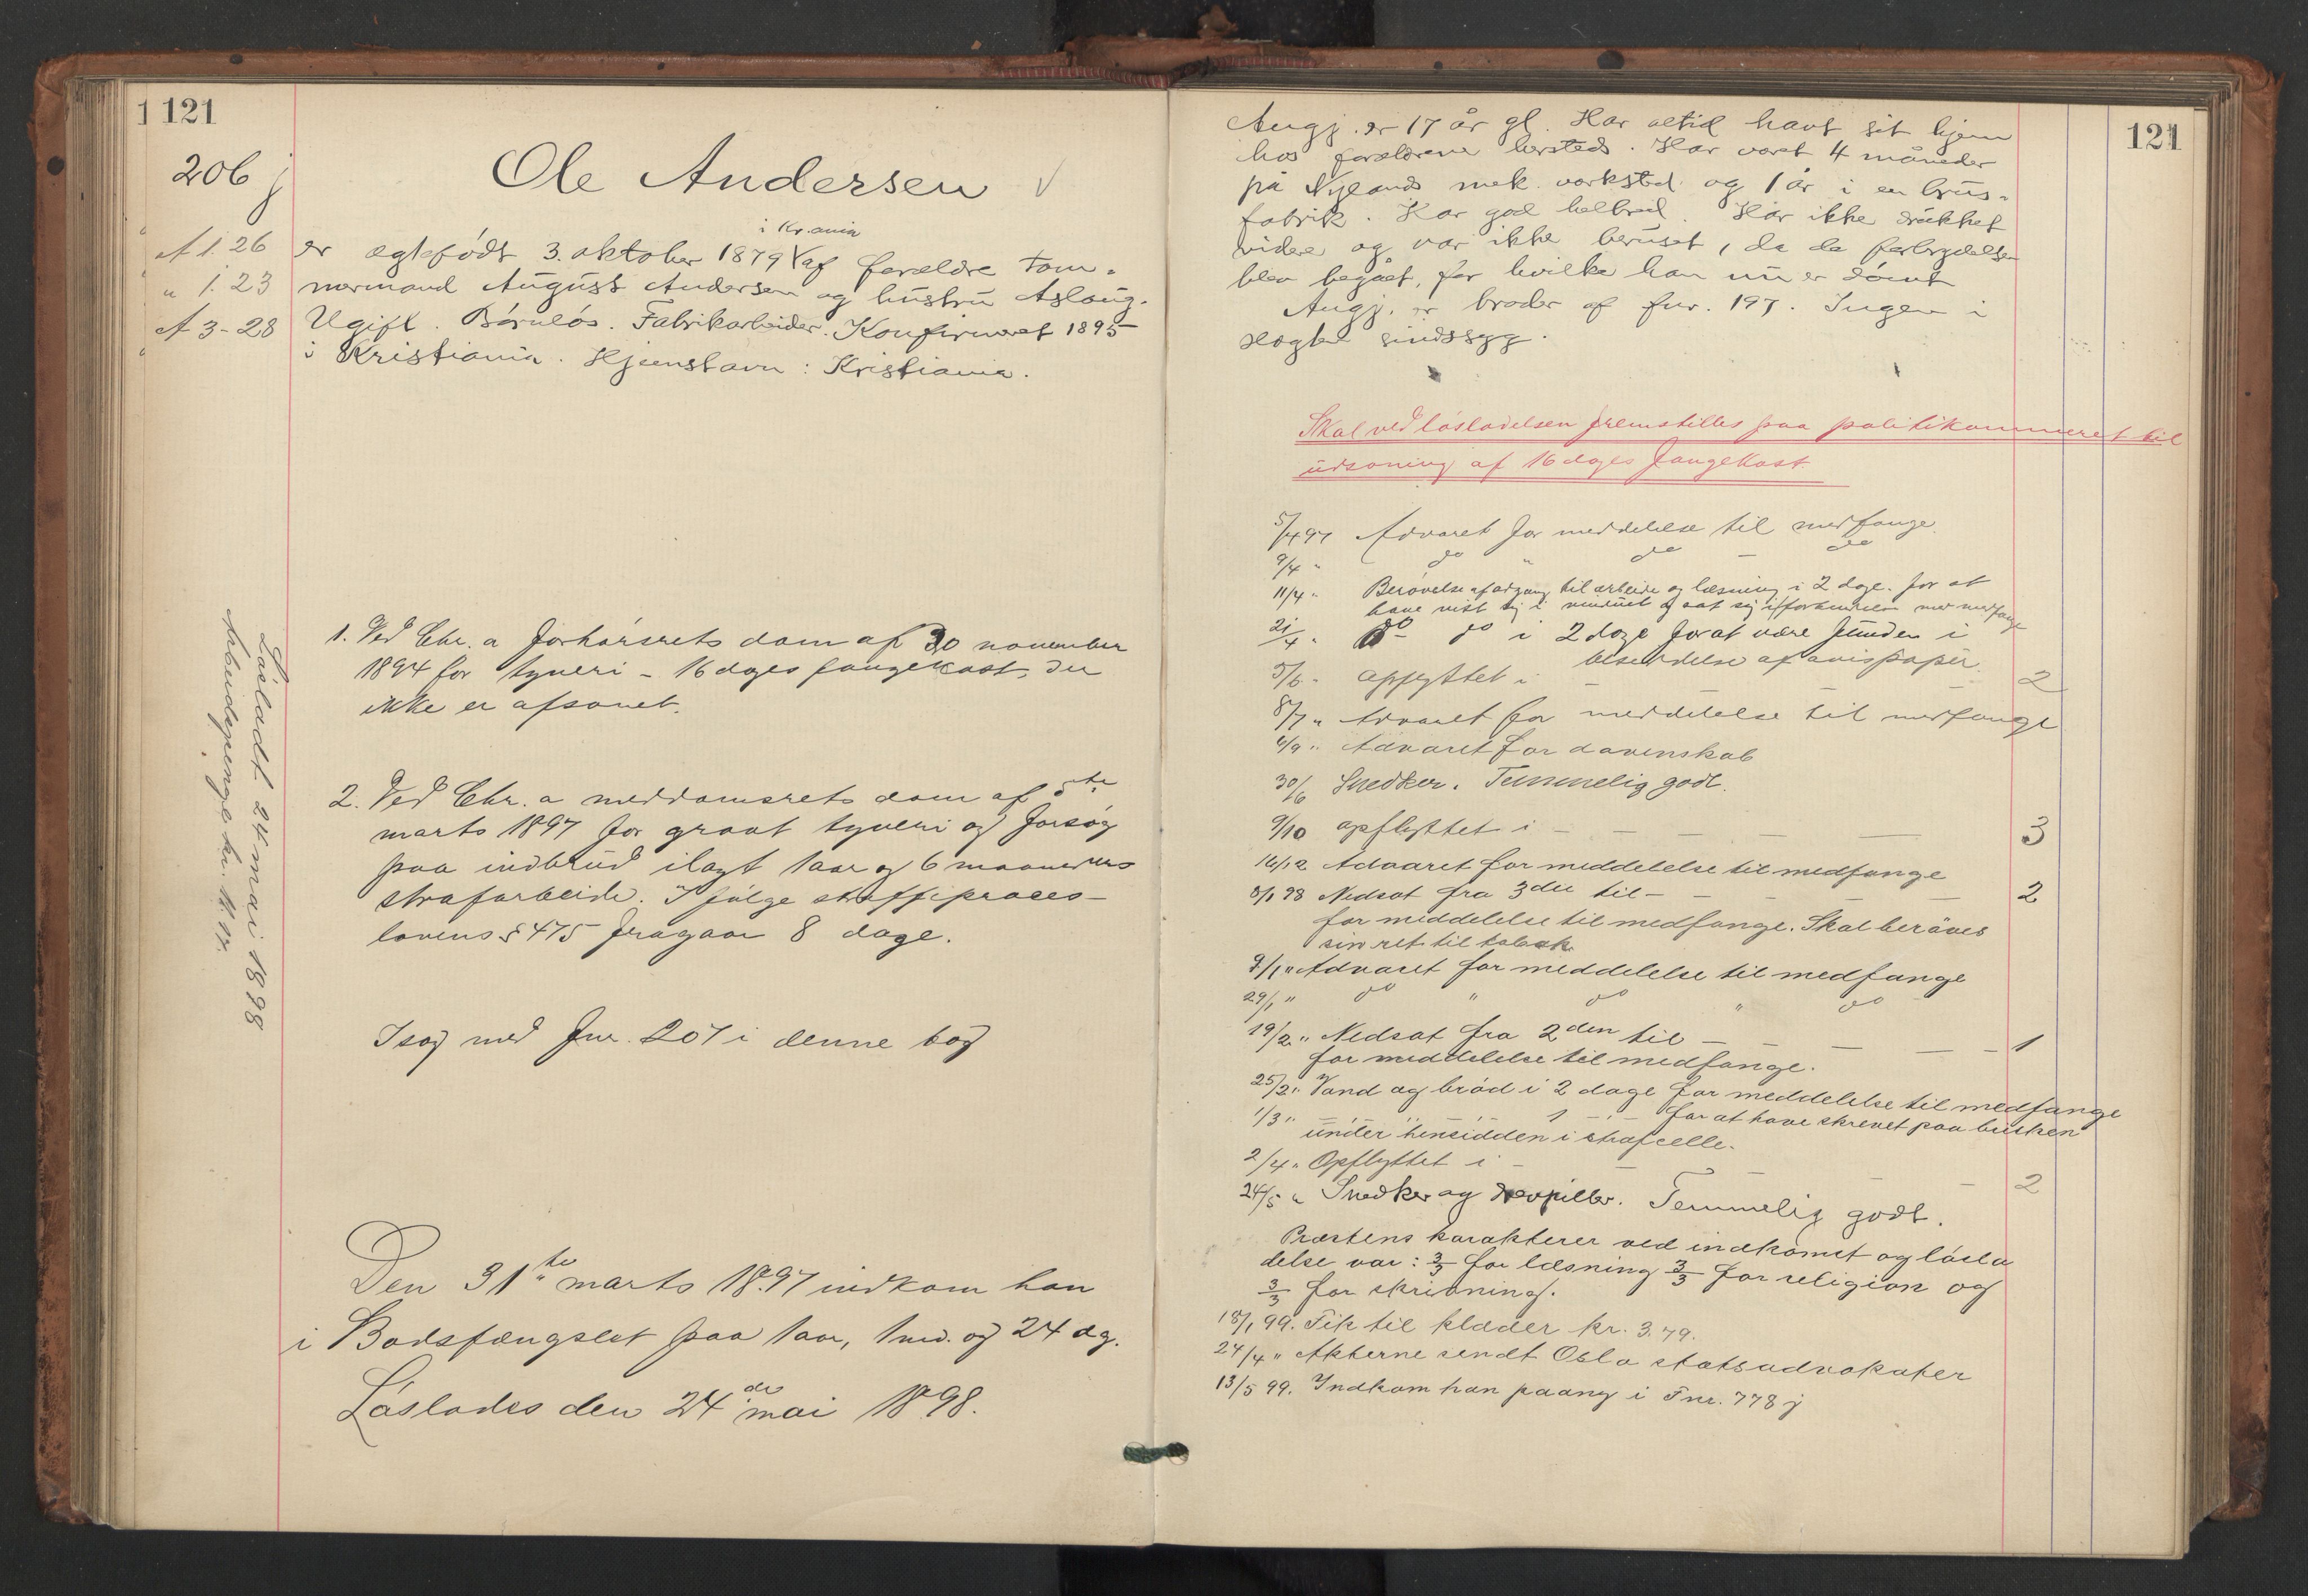 1 121
206 j
Ole Andersen √
A 1. 26
" 1. 23
A 3 - 28
i Kr.ania
er ægtefødt 3. oktober 1879 √ af forældre tøm-
mermand August Andersen og hustru Aslaug.
Ugift. Børnløs. Fabrikarbeider. Konfirmeret 1895
i Kristiania. Hjemstavn: Kristiania.
1. Ved Chr.a forhørsrets dom af 30 november
1894 for tyveri - 16 dages fangekost, der
ikke er afsonet.
2. Ved Chr.a meddomsrets dom af 5te
marts 1897 for grovt tyveri og forsøg
paa indbrud ilagt 1 aar og 6 maaneders
strafarbeide. Ifølge straffeproces-
lovens § 475 fragaar 8 dage.
I sag med fnr. 207 i denne bog
Den 31te marts 1897 indkom han
i Bodsfængslet paa 1 aar, 1 md. og 24 dg.
Løslades den 24de mai 1898.
Løsladt 24 mai 1898
Arbeidspenge kr. 11.17.
121
Angj. er 17 år gl. Har altid havt sit hjem
hos forældrene hersteds. Har været 4 måneder
på Nylands mek. værksted og 1 år i en brus-
fabrik. Har god helbred. Har ikke drukket
videre og var ikke beruset, da de forbrydelser
blev begået, for hvilke han nu er dømt
Angj. er broder af fnr. 197. Ingen i
slægten sindssyg.
Skal ved løsladelsen fremstilles paa politikammeret til
udsoning af 16 dages fangekost.
5/4 97 Advaret for meddelelse til medfange.
9/4 " do " do - do
11/4 " Berøvelse af adgang til arbeide og læsning i 2 dage. for at
have vist sig i vinduet og sat sig i forbindelse med medfange
21/4 " do - do i 2 dage for at være funden i
besiddelse af avispapir.
5/6 " opflyttet i - 2
8/7 " Advaret for meddelelse til medfange
6/9 " Advaret for dovenskab
30/6 Snedker. Temmelig godt.
9/10 opflyttet i - - - - 3
16/12 Advaret for meddelelse til medfange
8/1 98 Nedsat fra 3die til - - - - 2
for meddelelse til medfange. Skal berøves
sin ret til tobak.
9/1 " Advaret for meddelelse til medfange
29/1 " do " do " do
19/2 " Nedsat fra 2den til - - - - 1
for meddelelse til medfange.
25/2 " Vand og brød i 2 dage for meddelelse til medfange
1/3 " - " - " - 1 - " - for at have skrevet paa
under hensidden i strafcelle.
2/4 " Opflyttet i - - - - 2
24/5 " Snedker og drevpiller. Temmelig godt.
Præstens karakterer ved indkomst og løsla
delse var: 3/3 for læsning 3/3 for religion og
3/3 for skrivning.
18/1 99. Fik til klæder kr. 3.79.
24/4 " Akterne sendt Oslo statsadvokater
13/5 99. Indkom han paany i Fnr. 778 j